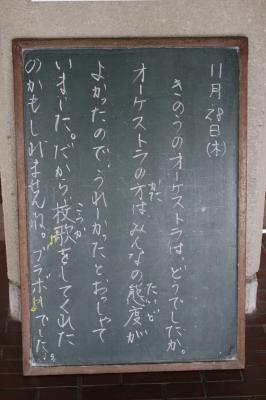 11月28日(木)
きのうのオーケストラは、どうでしたか。
オーケストラの方はみんなの態度が
よかったので、うれしかったとおっしゃて
いました。だから校歌をしてくれた
のかもしれませんね。ブラボーでした。